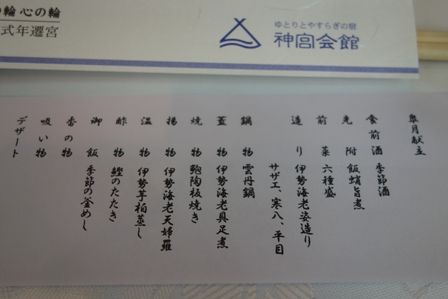 の輪 心の輪
式年遷宮
ゆとりとやすらぎの宿
神宮会館
皐月献立
食前酒 季節酒
先附 飯蛸旨煮
前菜 六種盛
造り 伊勢海老姿造り
サザエ、寒八、平目
鍋物 雲丹鍋
蓋物 伊勢海老具足煮
焼物 鮑陶板焼き
揚物 伊勢海老天婦羅
温物 伊勢芋柏蒸し
酢物 鰹のたたき
御飯 季節の釜めし
香の物
吸い物
デザート